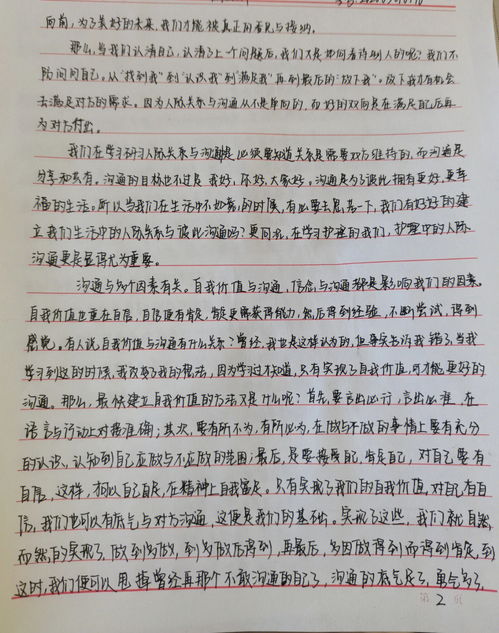 向前，为了美好的未来，我们才能被真正的看见与接纳。
那么，当我们认清自己，认清了上一个问题后，我们又是如何看待别人的呢？我们不
防问问自己。从“找到我”到“认识我”到“满足我”再到最后的“放下我”。放下我才有机会
去满足对方的需求。因为人际关系与沟通从不是单向的，而好的双向是在满足自己后再
为对方付出。
我们在学习研习人际关系与沟通是必须要知道关系是需要双方维持的，而沟通是
分享和共有。沟通的目标也不过是我好，你好，大家好。沟通是为了彼此拥有更好，更幸
福的生活。所以当我们在生活中不如意的时候，有必要去思考一下，我们有好好的建
立我们生活中的人际关系与彼此沟通吗？更何况，在学习护理的我们，护理中的人际
沟通更是显得尤为重要。
沟通与多个因素有关。自我价值与沟通，信念与沟通都是影响我们的因素。
自我价值也重在自信，自信便有能，能更需获得能力，然后得到经验，不断尝试，得到
感觉。有人说，自我价值与沟通有什么关系？曾经，我也是这样认为的，但事实告诉我错了，当我
学习到这的时候，我改变了我的想法，因为学过才知道，只有实现了自我价值，可才能更好的
沟通。那么，最快建立自我价值的方法又是什么呢？首先，要言出必行，言出必准，在
语言与行动上对接准确；其次，要有所不为，有所必为，在做与不做的事情上要有充分
的认识，认知到自己应做与不应做的范围；最后，是要接受自己，肯定自己，对自己要有
自信，这样，才可以自己自足，在精神上自我富足。只有实现了我们的自我价值，对自己有自
信，我们也可以有底气与对方沟通，这便是我们的基础。实现了这些，我们就自然
而然的实现了，做到多做，到多做后得到，再最后，多因做得到而得到肯定，到
这时，我们便可以甩掉曾经再那个不敢沟通的自己了，沟通的底气足了，勇气多了，
第 2 页